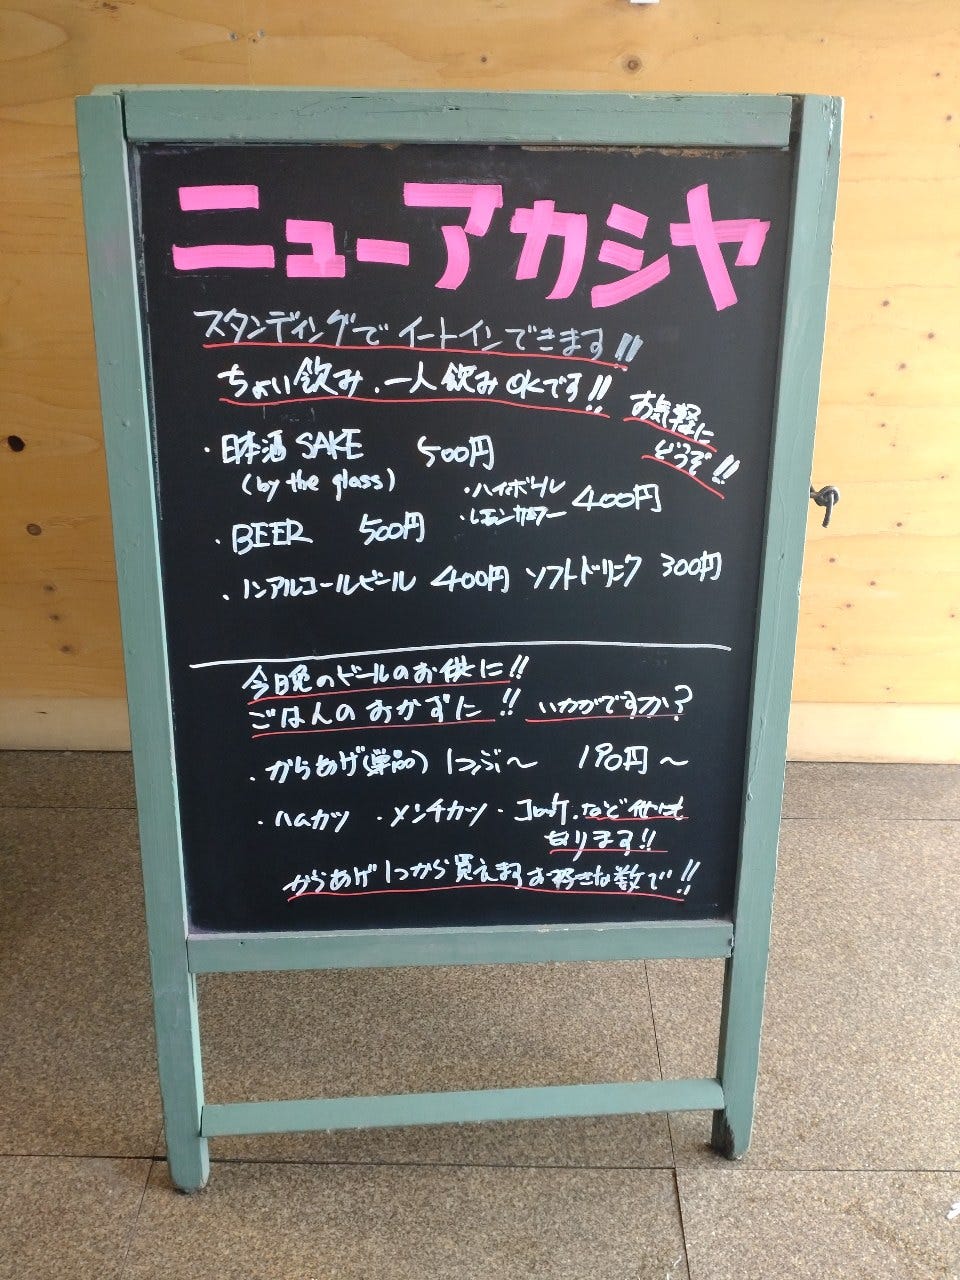 ニューアカシヤ
スタンディングでイートインできます!!
ちょい飲み.一人飲みOKです!!
お気軽に
どうぞ!!
・日本酒 SAKE 500円
(by the glass)
・ハイボール
・レモンサワー 400円
・BEER 500円
・ノンアルコールビール 400円 ソフトドリンク 300円
今日晩のビールのお供に!!
ごはんのおかずに!! いかがですか?
・からあげ(単品) 1コ〜 190円〜
・ハムカツ ・メンチカツ・コロッケ.など他にも
あります!!
からあげ1つから買えますお好きな数で!!